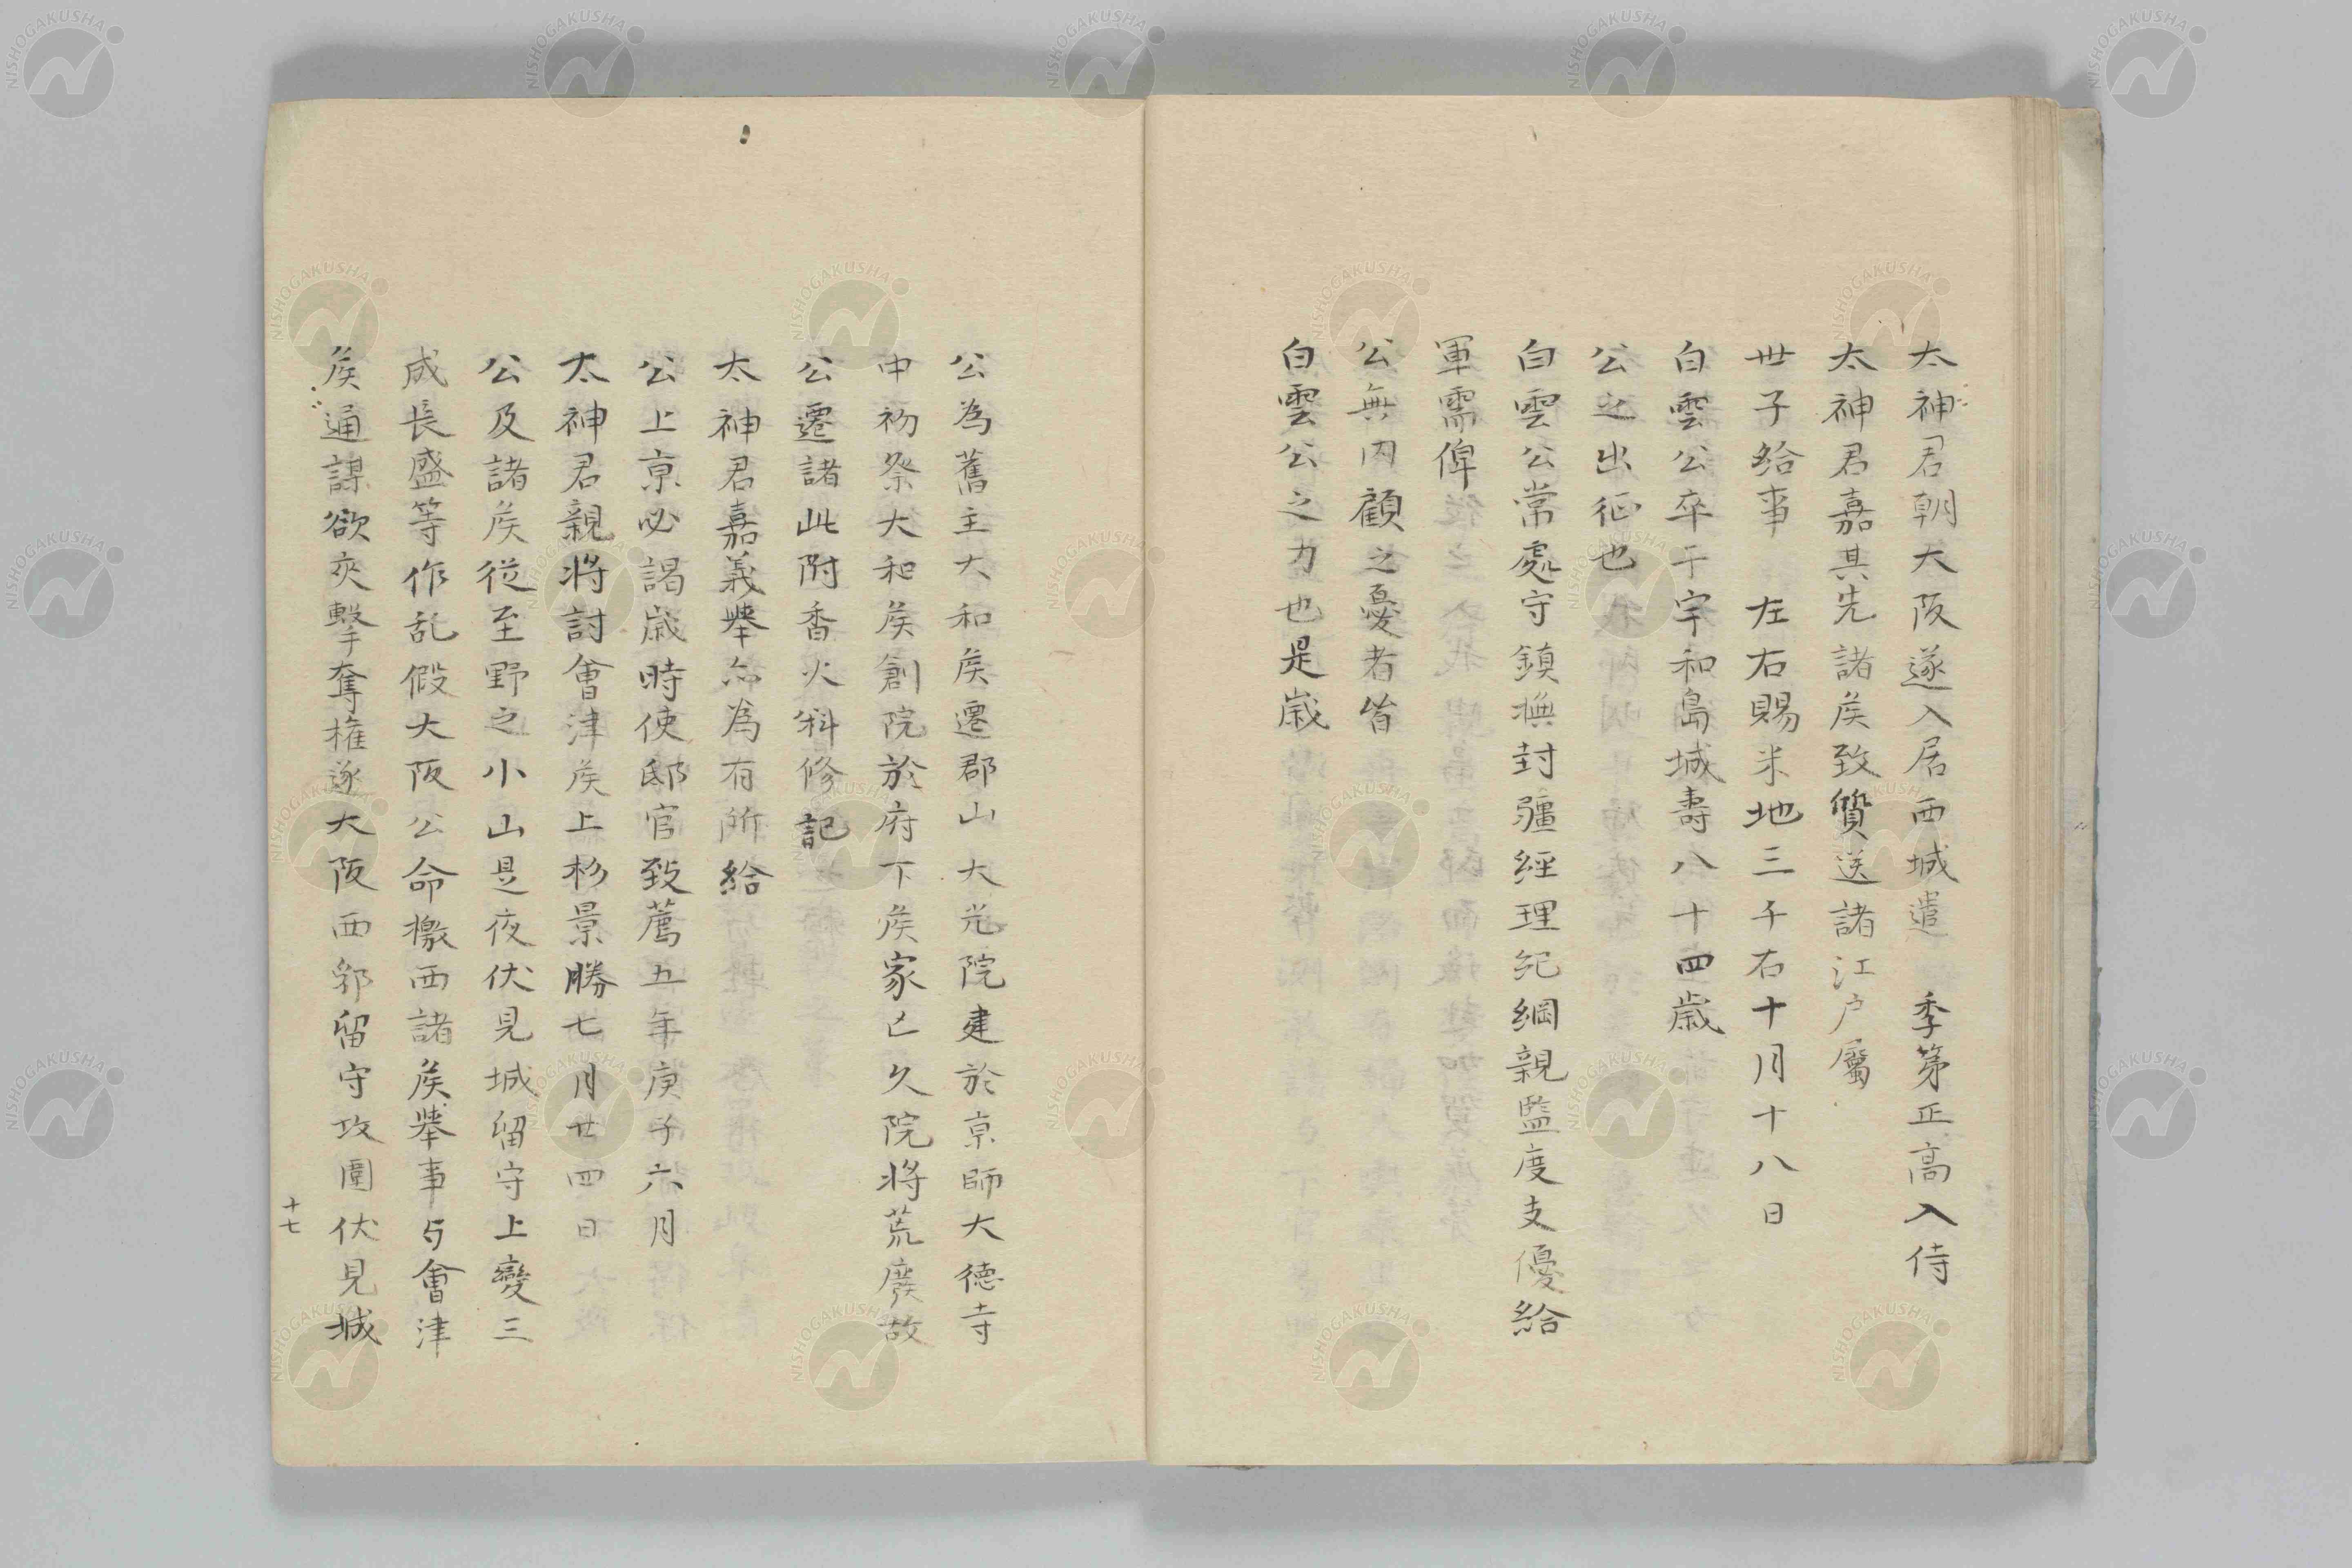 太神君朝大阪遂入居西城遣　季第正高入侍
太神君嘉其先諸矦致質送諸江户屬
世子給事　左右賜米地三千石十月十八日
白雲公卒于宇和島城壽八十四歲
公之出征也
白雲公常處守鎮撫封疆經理紀綱親監度支優給
軍需俾
公無内顧之憂者皆
白雲公之力也是歲
公為舊主大和矦遷郡山大光院建於亰師大徳寺
中初祭大和矦創院於府下矦家亡久院將荒廢故
公遷諸此附香火料修記
太神君嘉義舉亦為有所給
公上亰必謁歲時使邸官致薦五年庚子六月
太神君親將討會津矦上杉景勝七月廿四日
公及諸矦從至野之小山是夜伏見城留守上變三
成長盛等作乱假大阪公命檄西諸矦舉事与會津
矦通謀欲夾擊奪権遂大阪西郛留守攻圍伏見城
十七
NISHOGAKUSHA